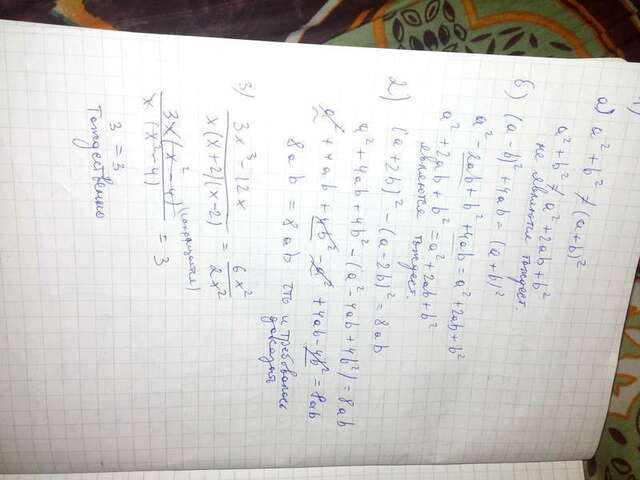 1)
а) a² + b² ≠ (a+b)²
a² + b² ≠ a² + 2ab + b²
не являются тождест.
б) (a-b)² + 4ab = (a+b)²
a² - 2ab + b² + 4ab = a² + 2ab + b²
a² + 2ab + b² = a² + 2ab + b²
являются тождест.
2) (a+2b)² - (a-2b)² = 8ab
a² + 4ab + 4b² - (a² - 4ab + 4b²) = 8ab
a² + 4ab + 4b² - a² + 4ab - 4b² = 8ab
8ab = 8ab что и требовалось
доказать
3) 3x³ - 12x / x(x+2)(x-2) = 6x² / 2x²
3x(x² - 4) / x(x² - 4) (сокращается) = 3
3 = 3
Тождественно